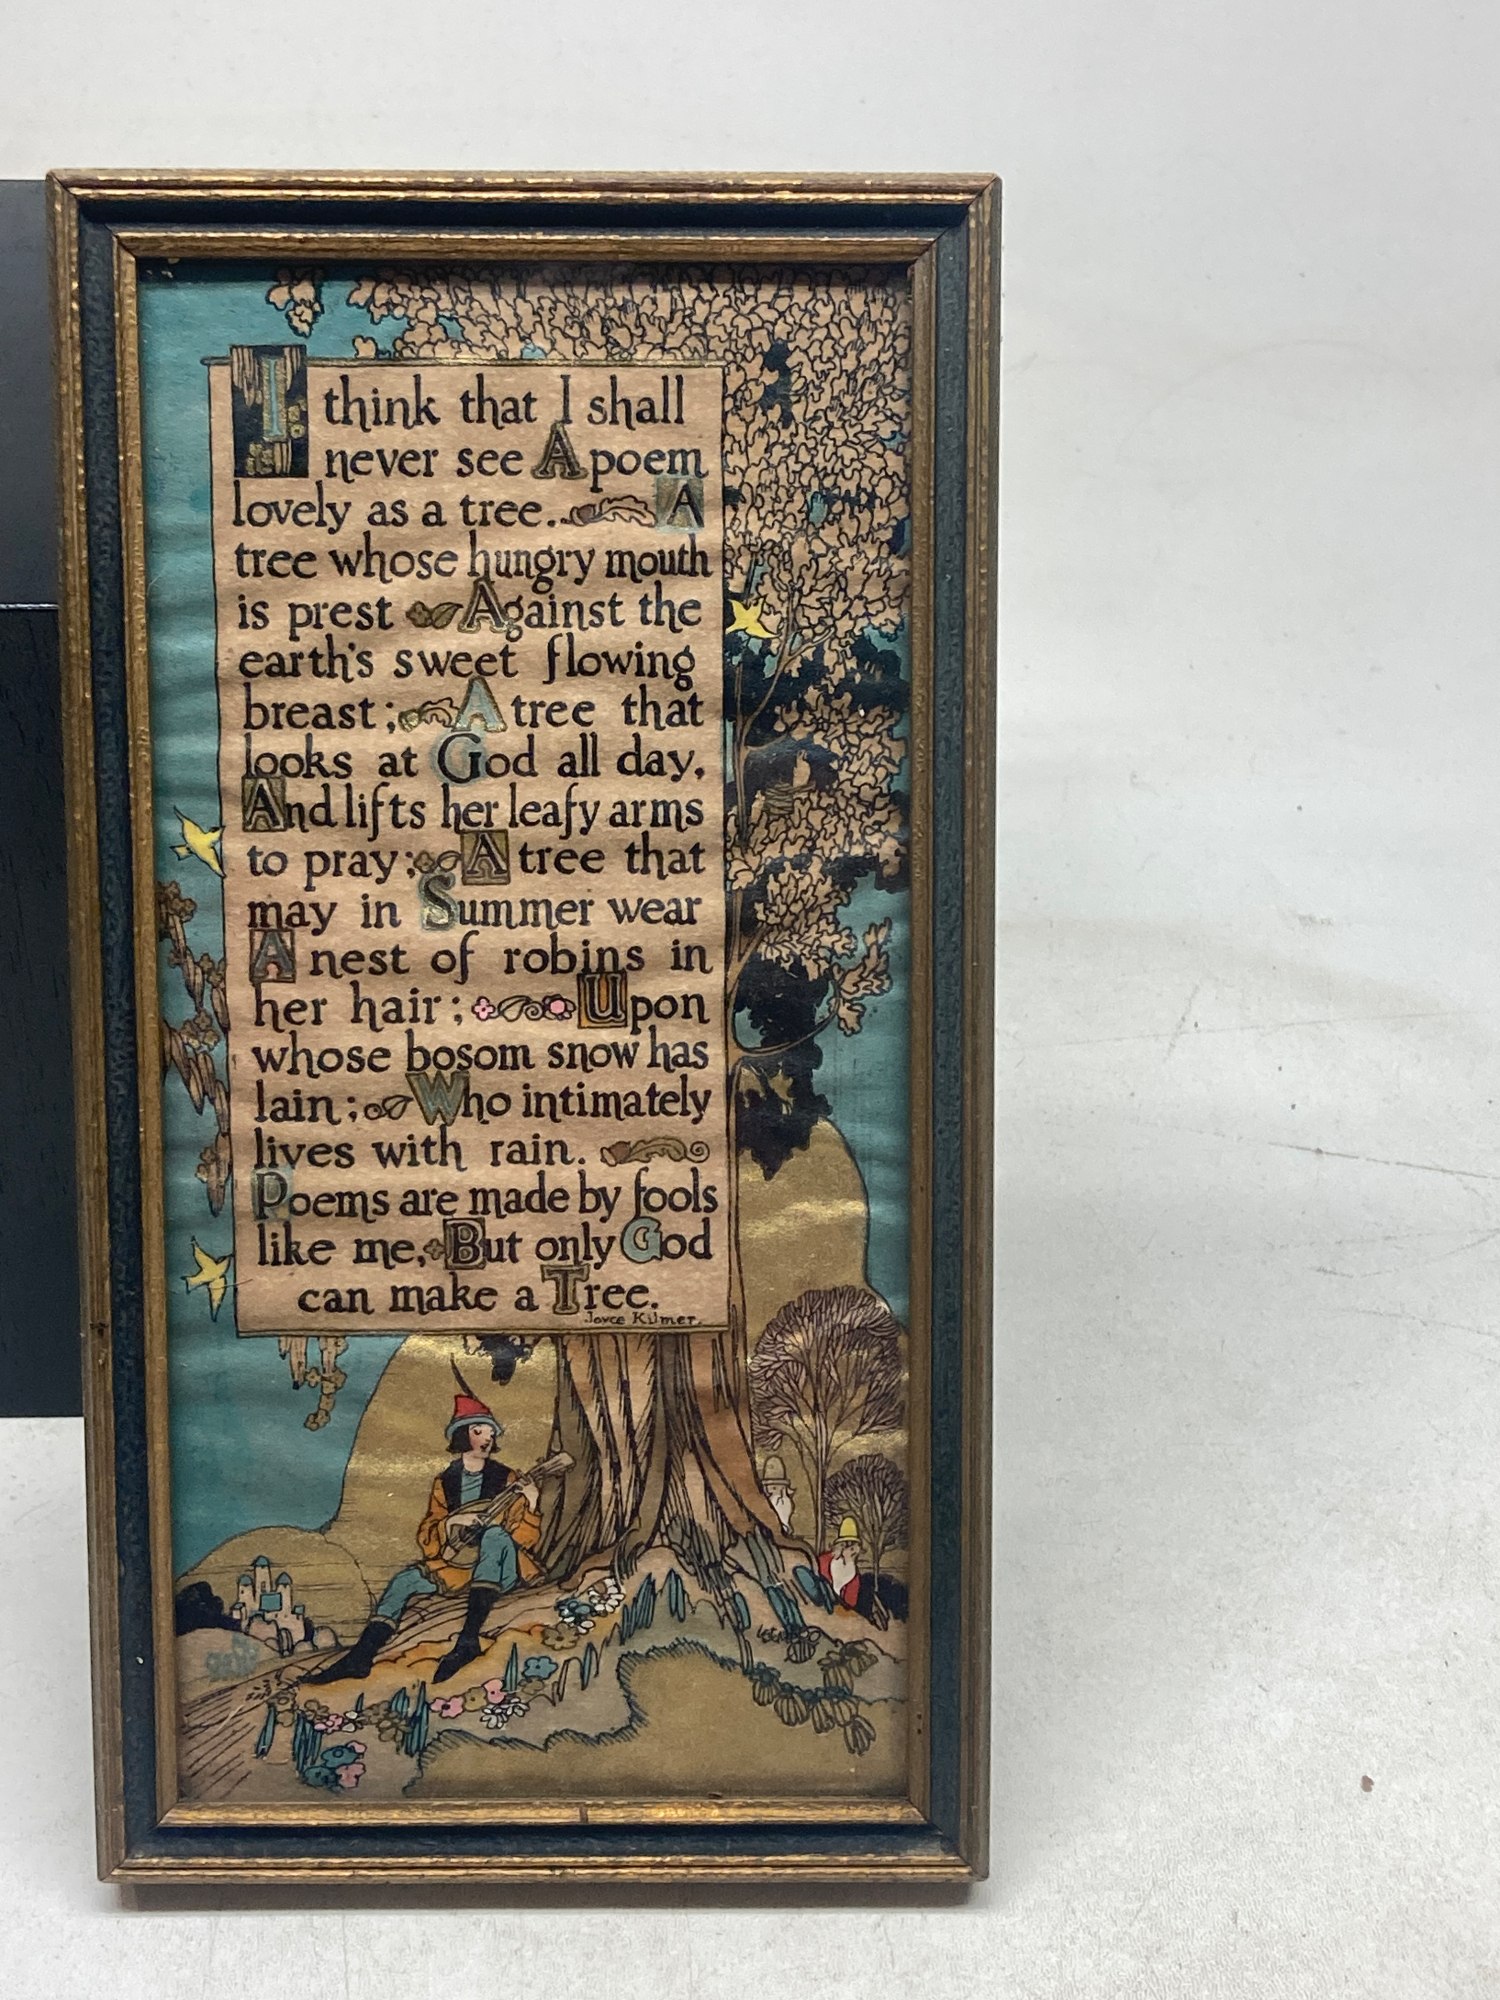 I think that I shall
never see A poem
lovely as a tree.. A
tree whose hungry mouth
is prest Against the
earth's sweet flowing
breast; A tree that
looks at God all day,
And lifts her leafy arms
to pray; A tree that
may in Summer wear
A nest of robins in
her hair; Upon
whose bosom snow has
lain; Who intimately
lives with rain.
Poems are made by fools
like me, But only God
can make a Tree.
Joyce Kilmer.